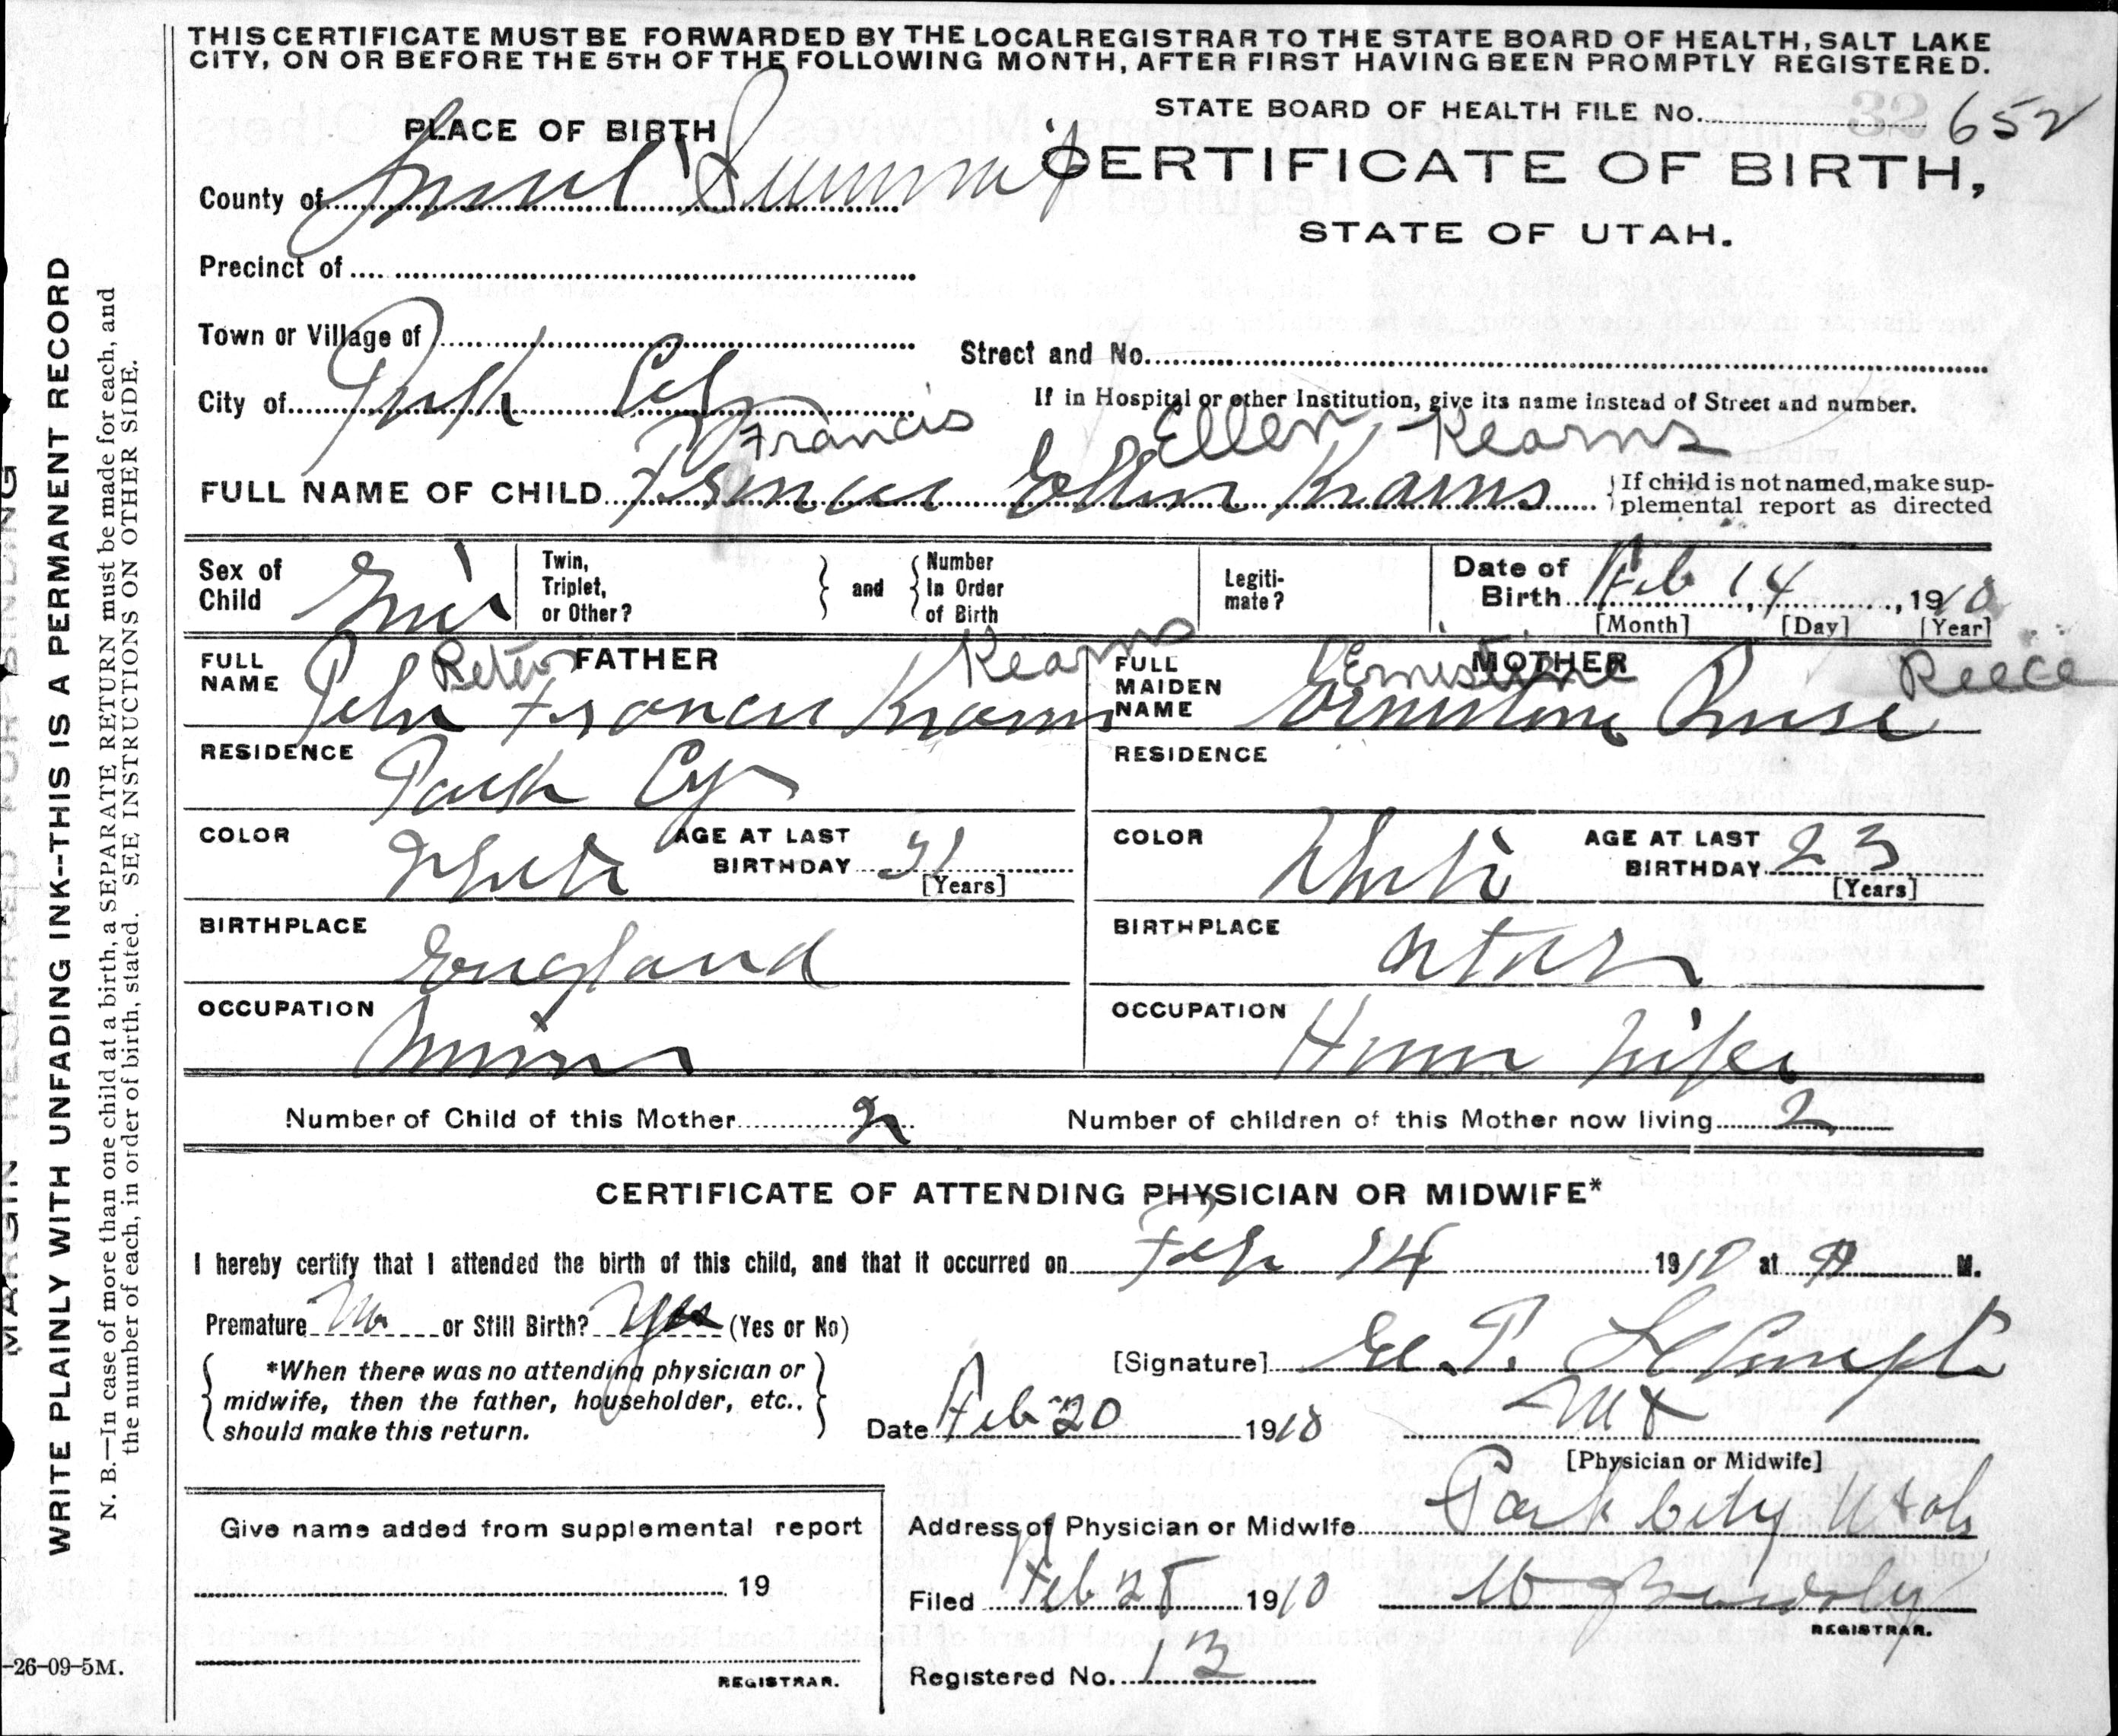 THIS CERTIFICATE MUST BE FORWARDED BY THE LOCAL REGISTRAR TO THE STATE BOARD OF HEALTH, SALT LAKE
CITY, ON OR BEFORE THE 5TH OF THE FOLLOWING MONTH, AFTER FIRST HAVING BEEN PROMPTLY REGISTERED.
STATE BOARD OF HEALTH FILE No. 32 652
PLACE OF BIRTH
CERTIFICATE OF BIRTH,
STATE OF UTAH.
County of Summit
Precinct of
Town or Village of
Street and No.
City of Park City
If in Hospital or other Institution, give its name instead of Street and number.
Francis Ellen Kearns
FULL NAME OF CHILD Francis Ellen Kearns
{If child is not named, make sup-
plemental report as directed
Sex of Child
Twin, Triplet, or Other? } and { Number In Order of Birth
Legiti-mate?
Date of Birth Feb 14, 1910
[Month] [Day] [Year]
FATHER
FULL NAME Peter Kearns
John Francis Kearns
MOTHER
FULL MAIDEN NAME Ernestine Reece
Ernestine
RESIDENCE Park Cy
RESIDENCE
COLOR White AGE AT LAST BIRTHDAY 31 [Years]
COLOR White AGE AT LAST BIRTHDAY 23 [Years]
BIRTHPLACE England
BIRTHPLACE Utah
OCCUPATION Miner
OCCUPATION House Wife
Number of Child of this Mother 2
Number of children of this Mother now living 2
CERTIFICATE OF ATTENDING PHYSICIAN OR MIDWIFE*
I hereby certify that I attended the birth of this child, and that it occurred on Feb 14 1910 at M.
Premature No or Still Birth? Yes (Yes or No)
*When there was no attending physician or
midwife, then the father, householder, etc.,
should make this return.
[Signature]
Date Feb 20 1910
[Physician or Midwife]
Give name added from supplemental report
19
REGISTRAR.
Address of Physician or Midwife Park City Utah
Filed Feb 28 1910
REGISTRAR.
Registered No. 13
MARGIN RESERVED FOR BINDING
WRITE PLAINLY WITH UNFADING INK--THIS IS A PERMANENT RECORD
N. B.—In case of more than one child at a birth, a SEPARATE RETURN must be made for each, and
the number of each, in order of birth, stated. SEE INSTRUCTIONS ON OTHER SIDE.
-26-09-5M.